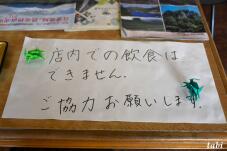 店内での飲食は
できません.
ご協力お願いします.
tabi